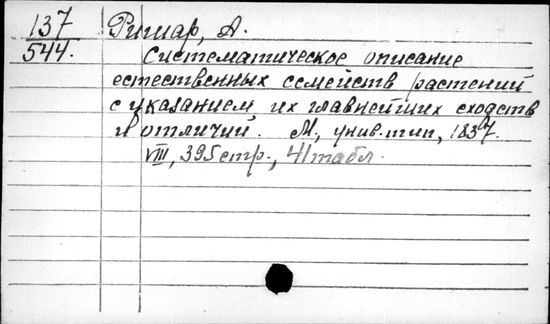 137 Ришар, А.
544. Систематическое описание
естественных семейств растений
с указанием их главнейших сходств
и отличий. М., унив. тип., 1837.
VIII, 395 стр., 41 табл.